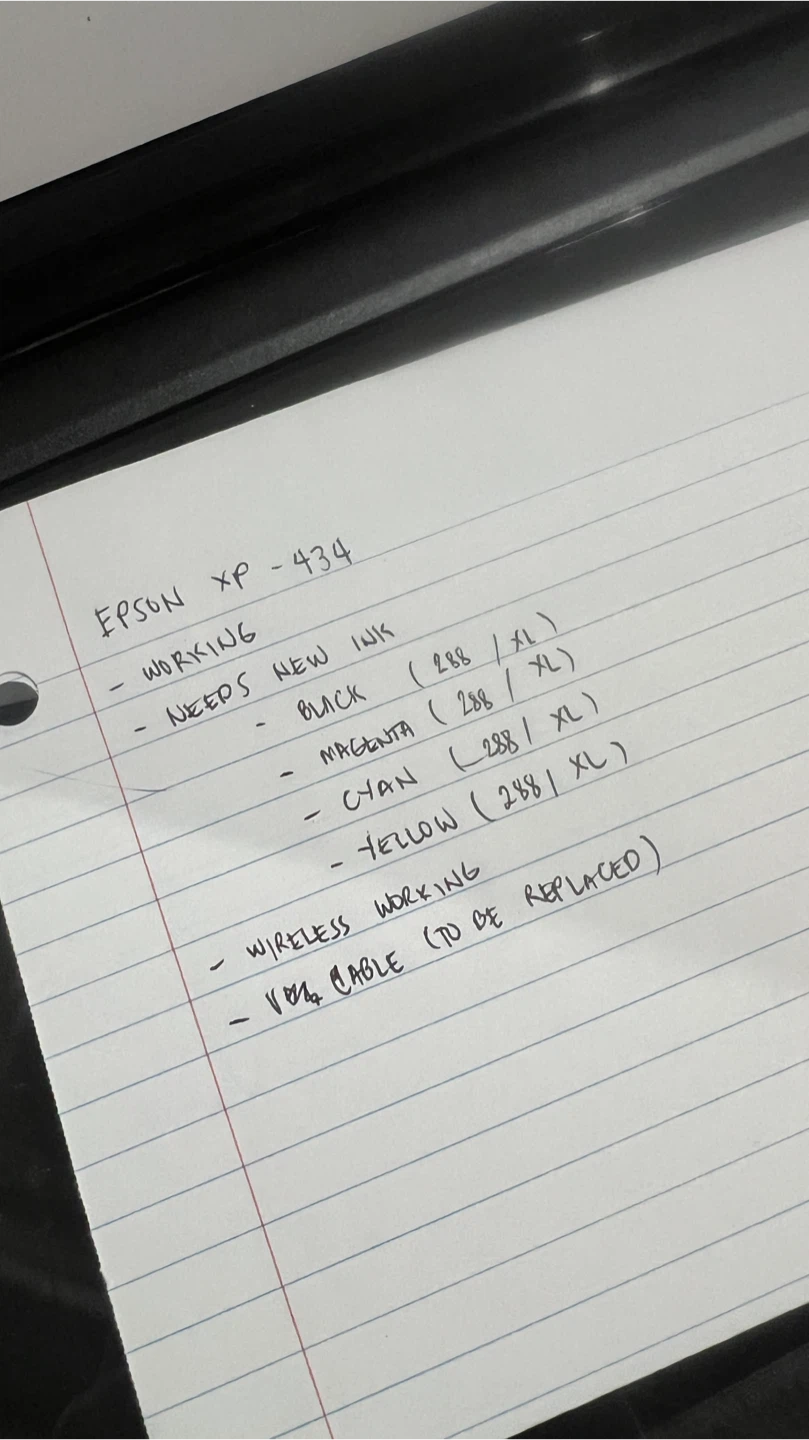 EPSON XP - 434
- WORKING
- NEEDS NEW INK
- BLACK (288 / XL)
- MAGENTA (288 / XL)
- CYAN (288 / XL)
- YELLOW (288 / XL)
- WIRELESS WORKING
- CABLE (TO BE REPLACED)